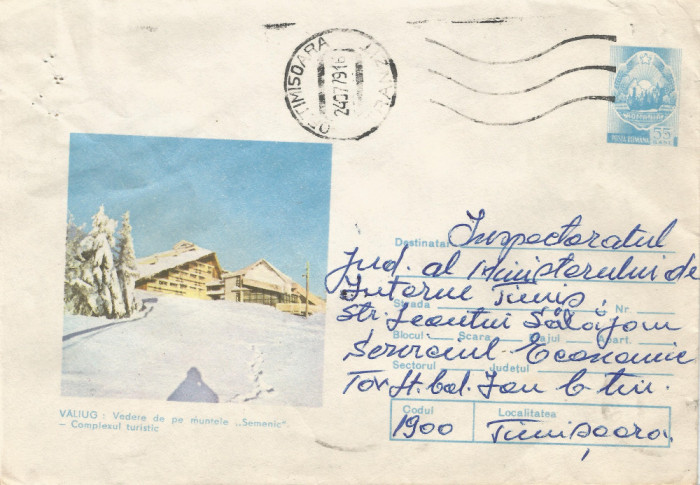 TIMISOARA
24.07.79.16
POSTA ROMANA
55
Destinatar Inspectoratul
Jud. al Ministerului de
Interne Timiș
Strada Nr.
Str. Leontin Sălăjan
Blocul Scara Etajul Apart.
Serviciul Economic
Sectorul Județul
Tov. Lt. col. Ion
Codul Localitatea
1900 Timișoara
VALIUG : Vedere de pe muntele „Semenic".
– Complexul turistic